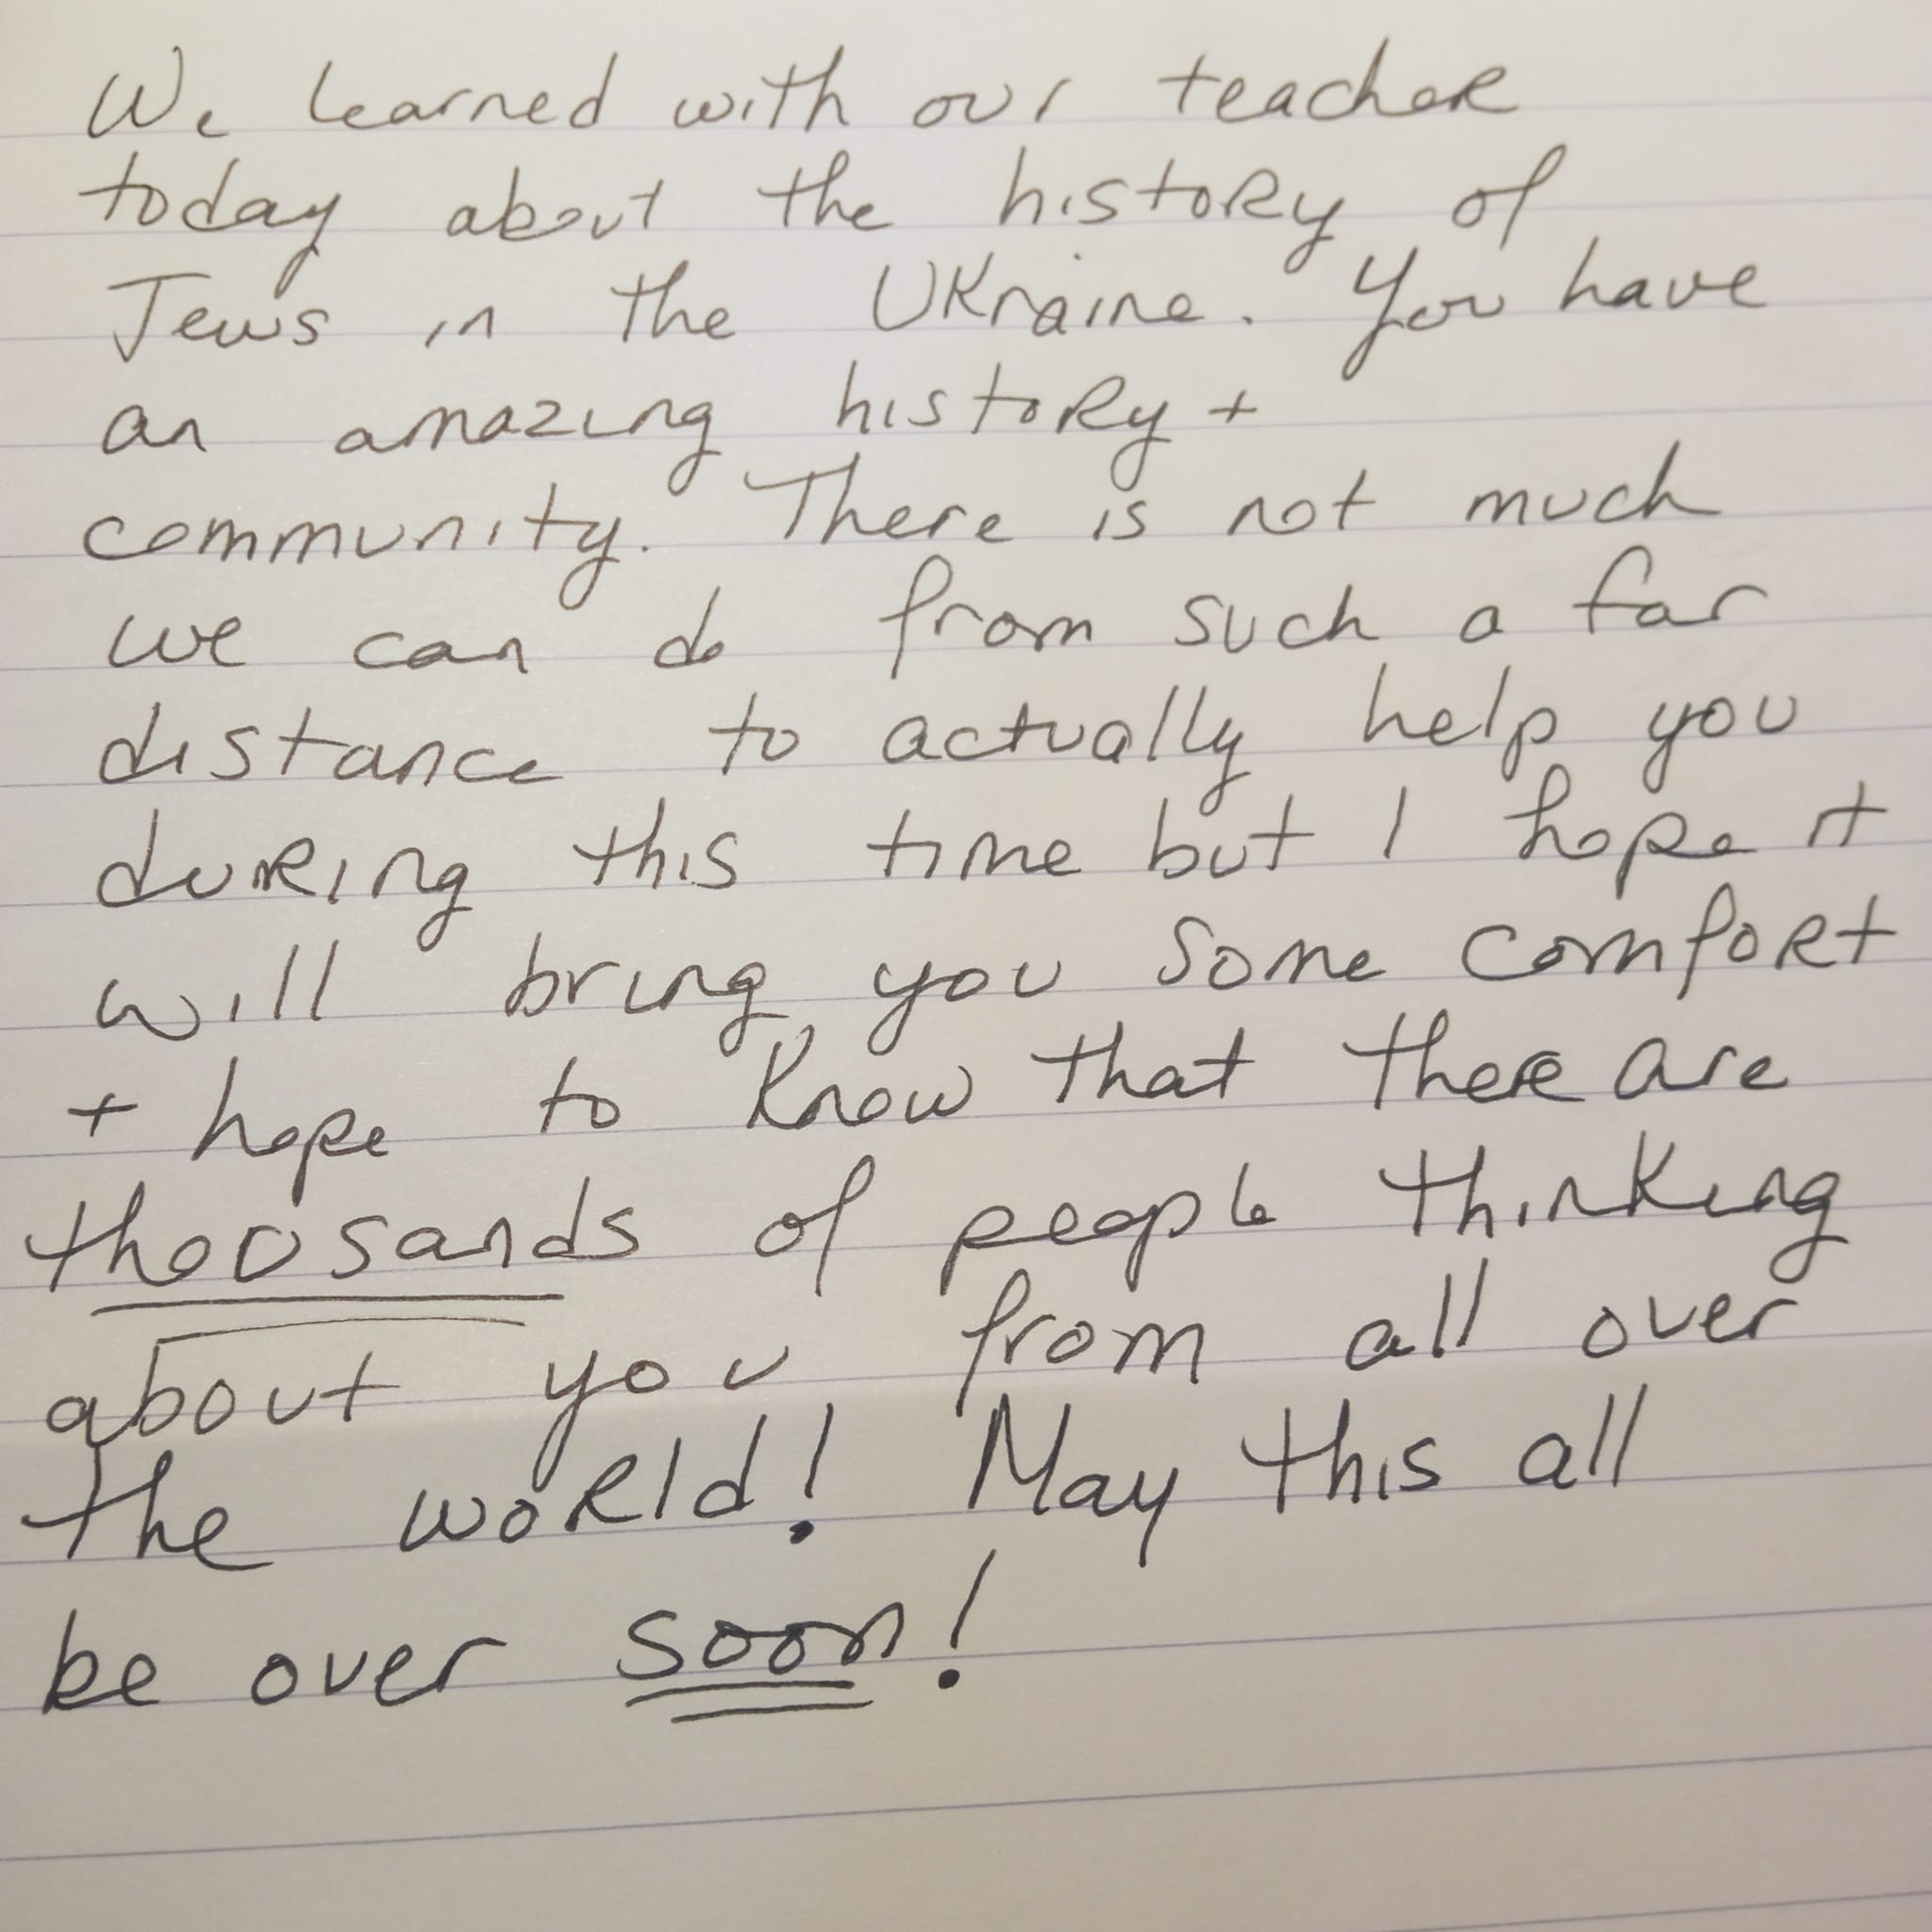 We learned with our teacher
today about the history of
Jews in the Ukraine. You have
an amazing history +
community. There is not much
we can do from such a far
distance to actually help you
during this time but I hope it
will bring you some comfort
+ hope to know that there are
thousands of people thinking
about you from all over
the world! May this all
be over soon!